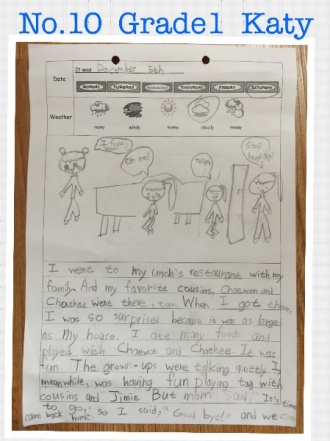 No.10 Grade1 Katy
Date
It was December 5th
MONDAY TUESDAY WEDNESDAY THURSDAY FRIDAY SATURDAY
Weather
rainy windy sunny cloudy snowy
Oh no!
I went to my uncle's restaurant with my
family. And my favorite cousins, Chaewon and
Chaehee went there, too. When I got there,
I was so surprised because it was as large
as My house. I ate many foods and
played with Chaewon and Chaehee It was
fun. The grown-ups were talking quietly I
meanwhile, was having fun playing tag with
cousins and Jimin. But mom said, "It's time
to go," so I said, "Good bye!" and we
came back home.